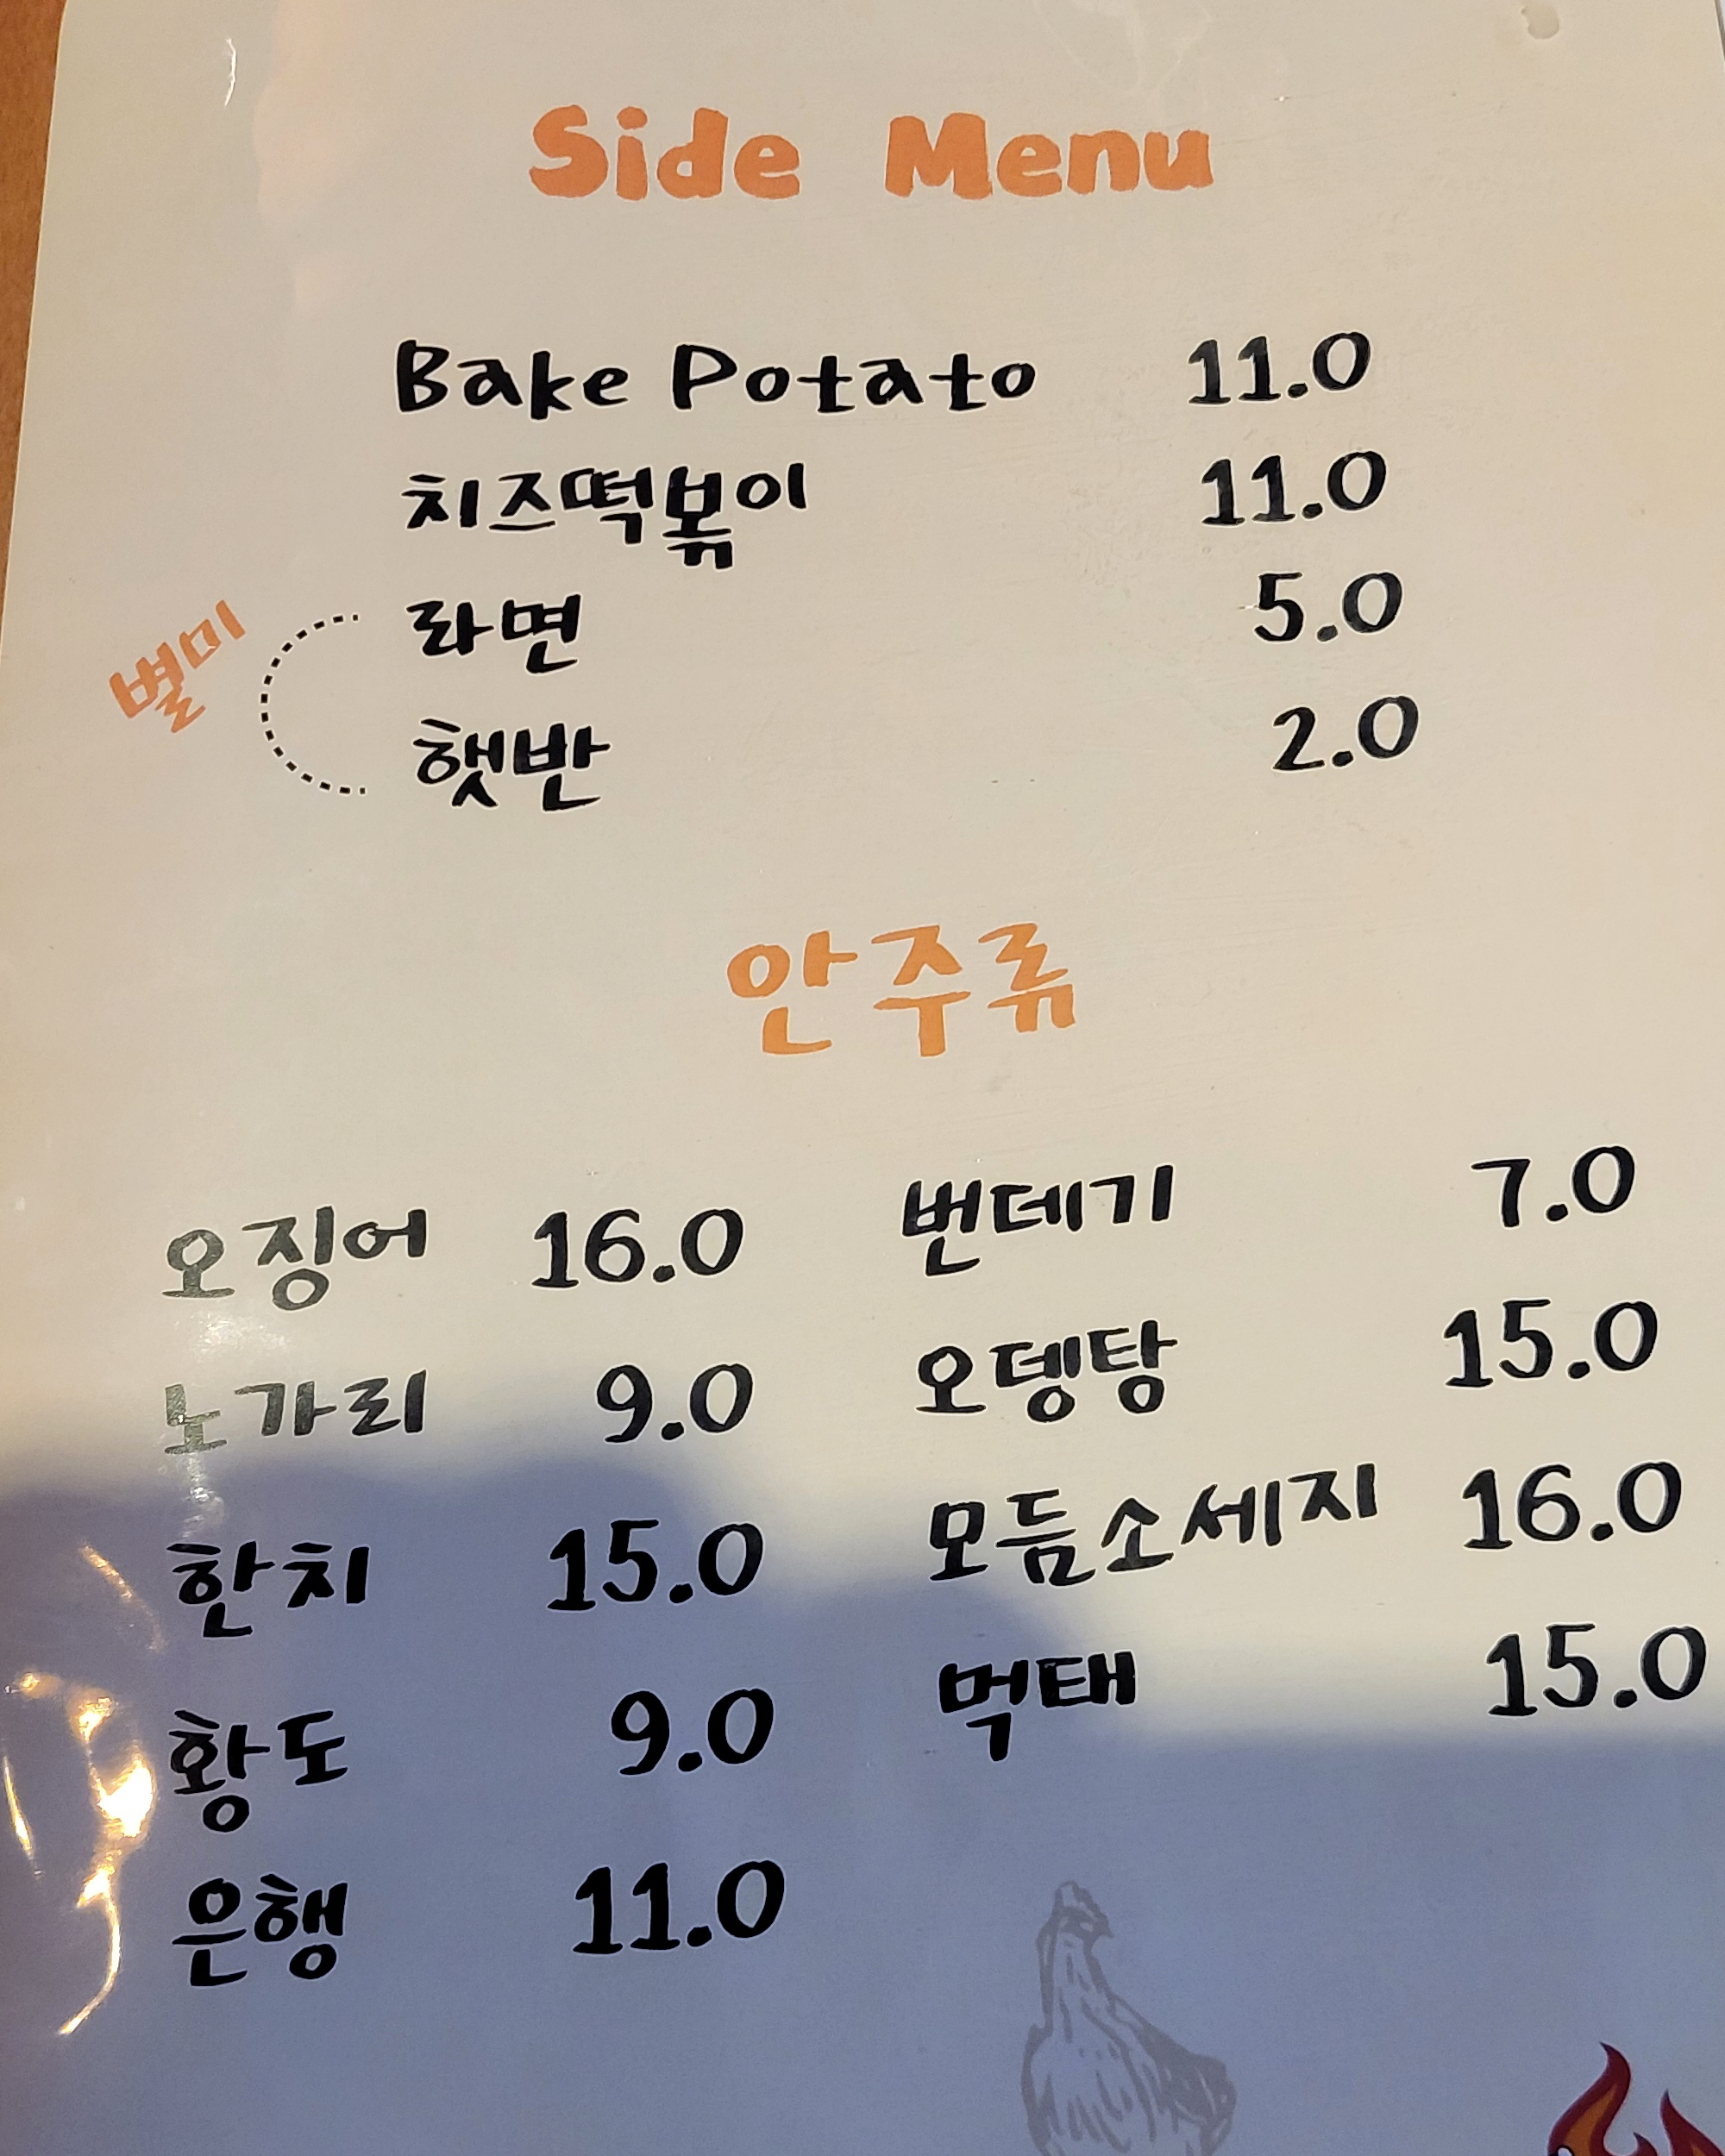 Side Menu
Bake Potato 11.0
치즈떡볶이 11.0
별미
라면 5.0
햇반 2.0
안주류
오징어 16.0
노가리 9.0
한치 15.0
황도 9.0
은행 11.0
번데기 7.0
오뎅탕 15.0
모듬소세지 16.0
먹태 15.0